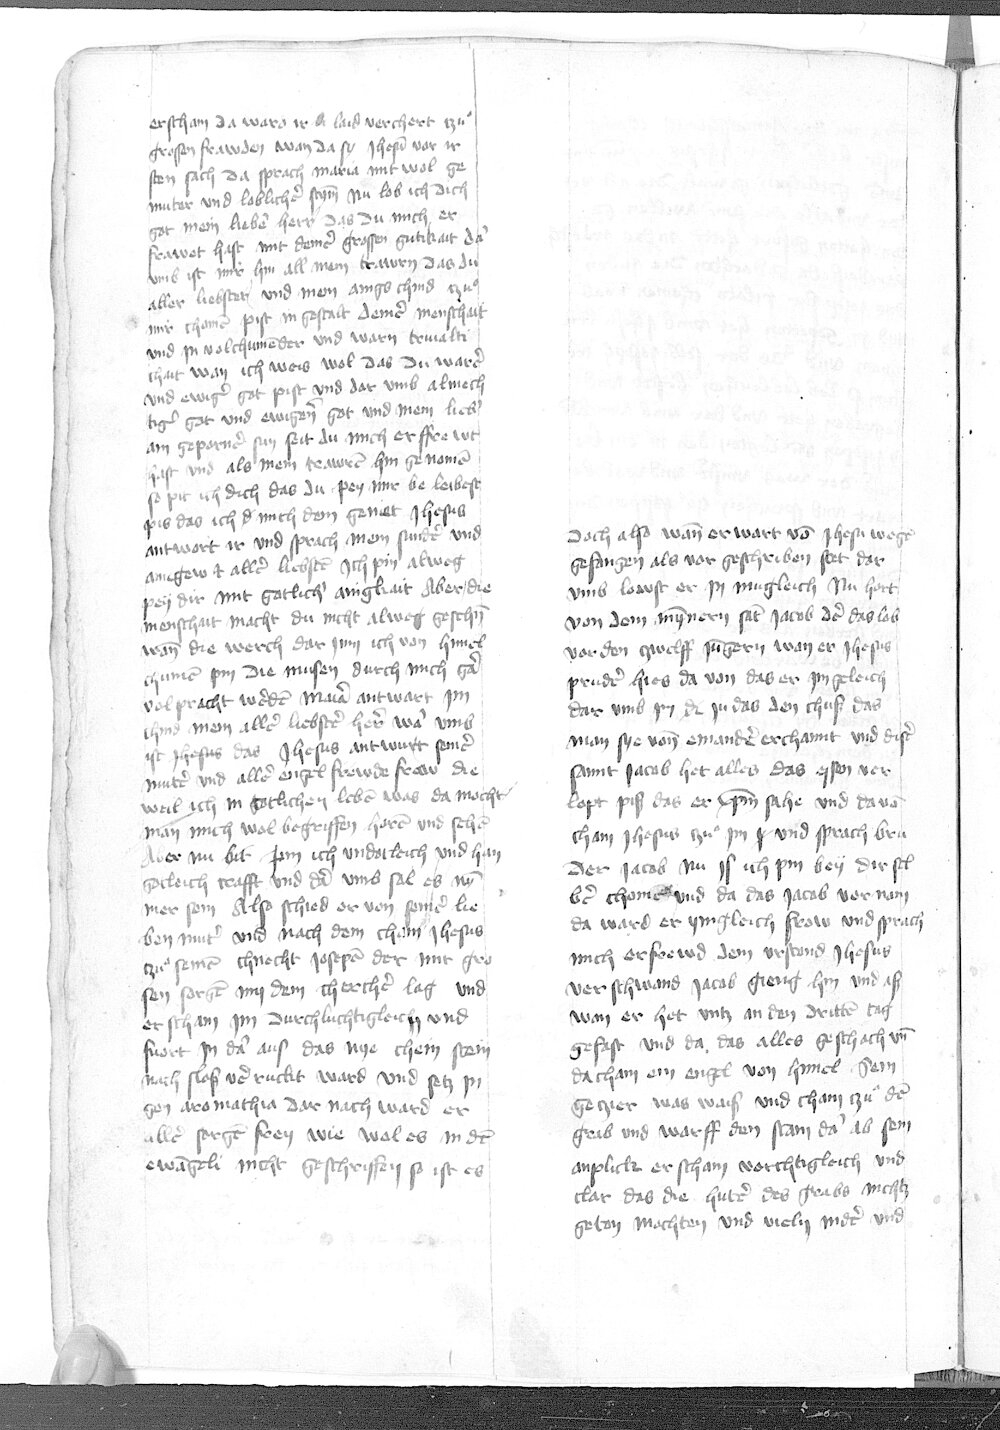 erscham da ward ir laid verchert czu
grossen frawden wan da sy Jhesu vor ir
sten sach da sprach maria mit wol ge
muter und loblicher stym Nu lob ich dich
got mein lieber herr das du mich er
frawet hast mit deiner grossen gutikait dar
umb ist mir hin all mein trawrn das du
aller liebster und mein ainigs chind czu
mir chomen pist in gestalt deiner menschait
und in volchumender und warn triualti
chait wan ich weis wol das du warer
und ewiger got pist und dar umb almech
tiger got und ewigen got und mein lieber
ain geporner sun seit du mich erffrewt
hast und als mein trawren hin genomen
so pit ich dich das du pey mir beleibest
pis das ich mich dein geniet Jhesus
antwort ir und sprach mein sunder und
aller liebste Ich pin alweg
pey dir mit gotlicher ainigkait Aber die
menschait macht du nicht alweg geschen
wan die werch dar jnn ich von himel
chumen pin die musen durch mich gar
volpracht werden Maria antwort jm
chind mein aller liebster herr war umb
ist Jhesus das Jhesus antwurt seiner
muter und aller engel frewde frow die
weil ich in gotlichen leben was da mocht
man mich wol begriffen horen und sehen
Aber nu bit ich undotleich und han
gotleich crafft und dar umb sol es nym
mer sein Also schied er von seiner lie
ben muter und nach dem cham Jhesus
czu seinen chnecht josepen der mit gro
sen sorgen in dem chercher lag und
erscham jm durchluchtigleich und
fuort jn dar aus das nye chein stain
nach slos verruckt ward und setz jn
gen aromathia dar nach ward er
aller sorgen frey wie wol es in den
ewangeli nicht geschriffen so ist es
Doch also wan er wart von Jhesu wegen
gefangen als vor geschriben stet dar
umb lowst er jn mugleich Nu hort
von dem mynnern sant Jacob der das lob
vor den czwelff jungern wan er Jhesus
pruder hies da von das er jm geleich
dar umb judas den chuss das
man sye von einander erchannt und diser
sannt Jacob het alles das essen ver
lopt piss das er sahe und da von
cham Jhesus czu jm und sprach bru
der Jacob nu is ich pin bey dir sel
ber chomen und da das Jacob vernam
da ward er ymgleich frow und sprach
mich erfrewd dein urstend Jhesus
verschwand Jacob gieng hin und ass
wan er het untz an den dritten tag
gefast und da das alles geschach
da cham ein engel von himel Sein
geczier was waiss und cham czu dem
grab und warff den stain dar ab sein
anplick erscham vorchtigleich und
clar das die huter des grabs nichtz
geton mochten und vieln nider und